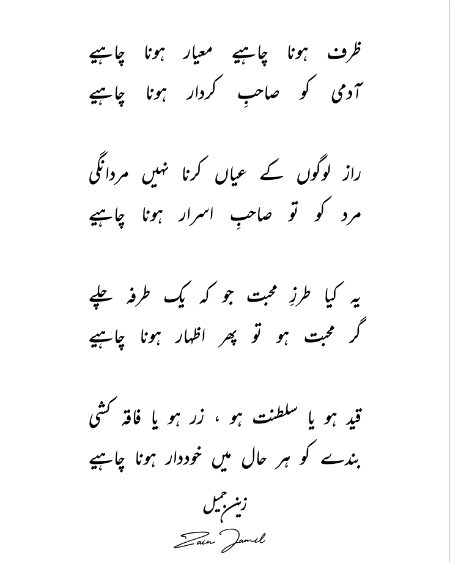 ظرف ہونا چاہیے معیار ہونا چاہیے
آدمی کو صاحبِ کردار ہونا چاہیے
راز لوگوں کے عیاں کرنا نہیں مردانگی
مرد کو تو صاحبِ اسرار ہونا چاہیے
یہ کیا طرزِ محبت جو کہ یک طرفہ چلے
گر محبت ہو تو پھر اظہار ہونا چاہیے
قید ہو یا سلطنت ہو ، زر ہو یا فاقہ کشی
بندے کو ہر حال میں خوددار ہونا چاہیے
زین جمیل
Zain Jamil